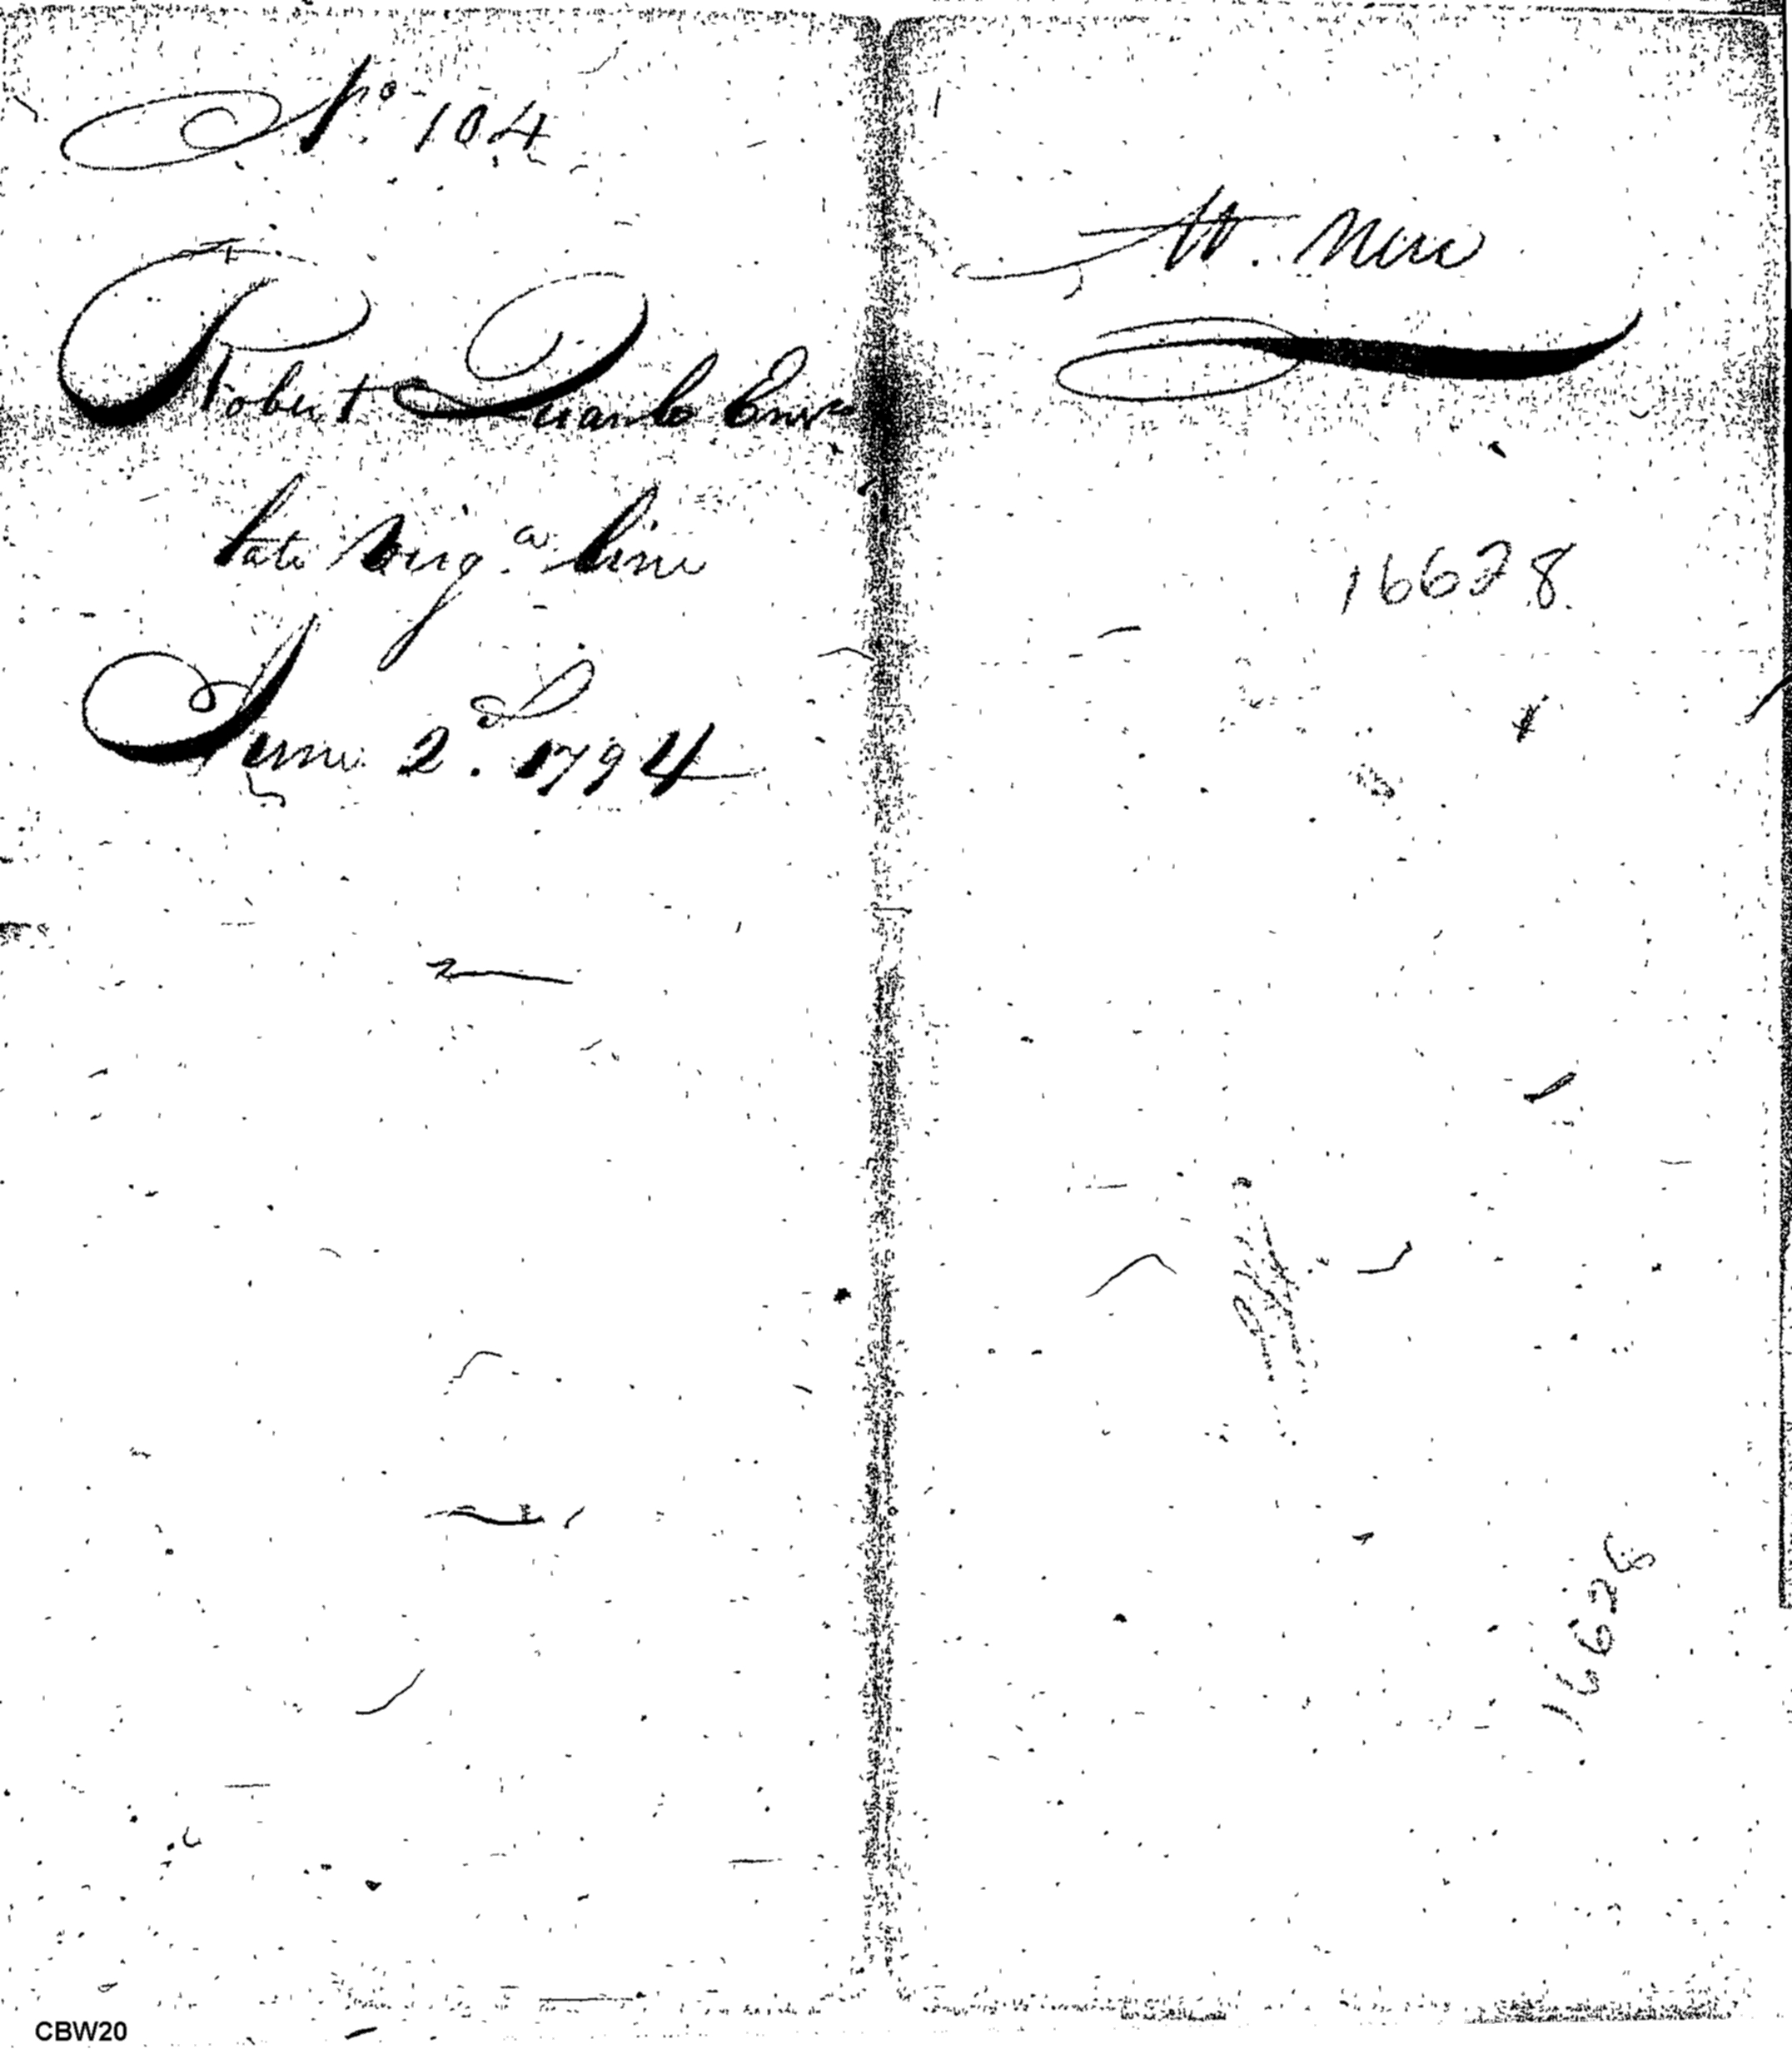 No 104
Robert Quarles Ens
late Virga line
June 2d. 1794
W.
16628
16628
CBW20